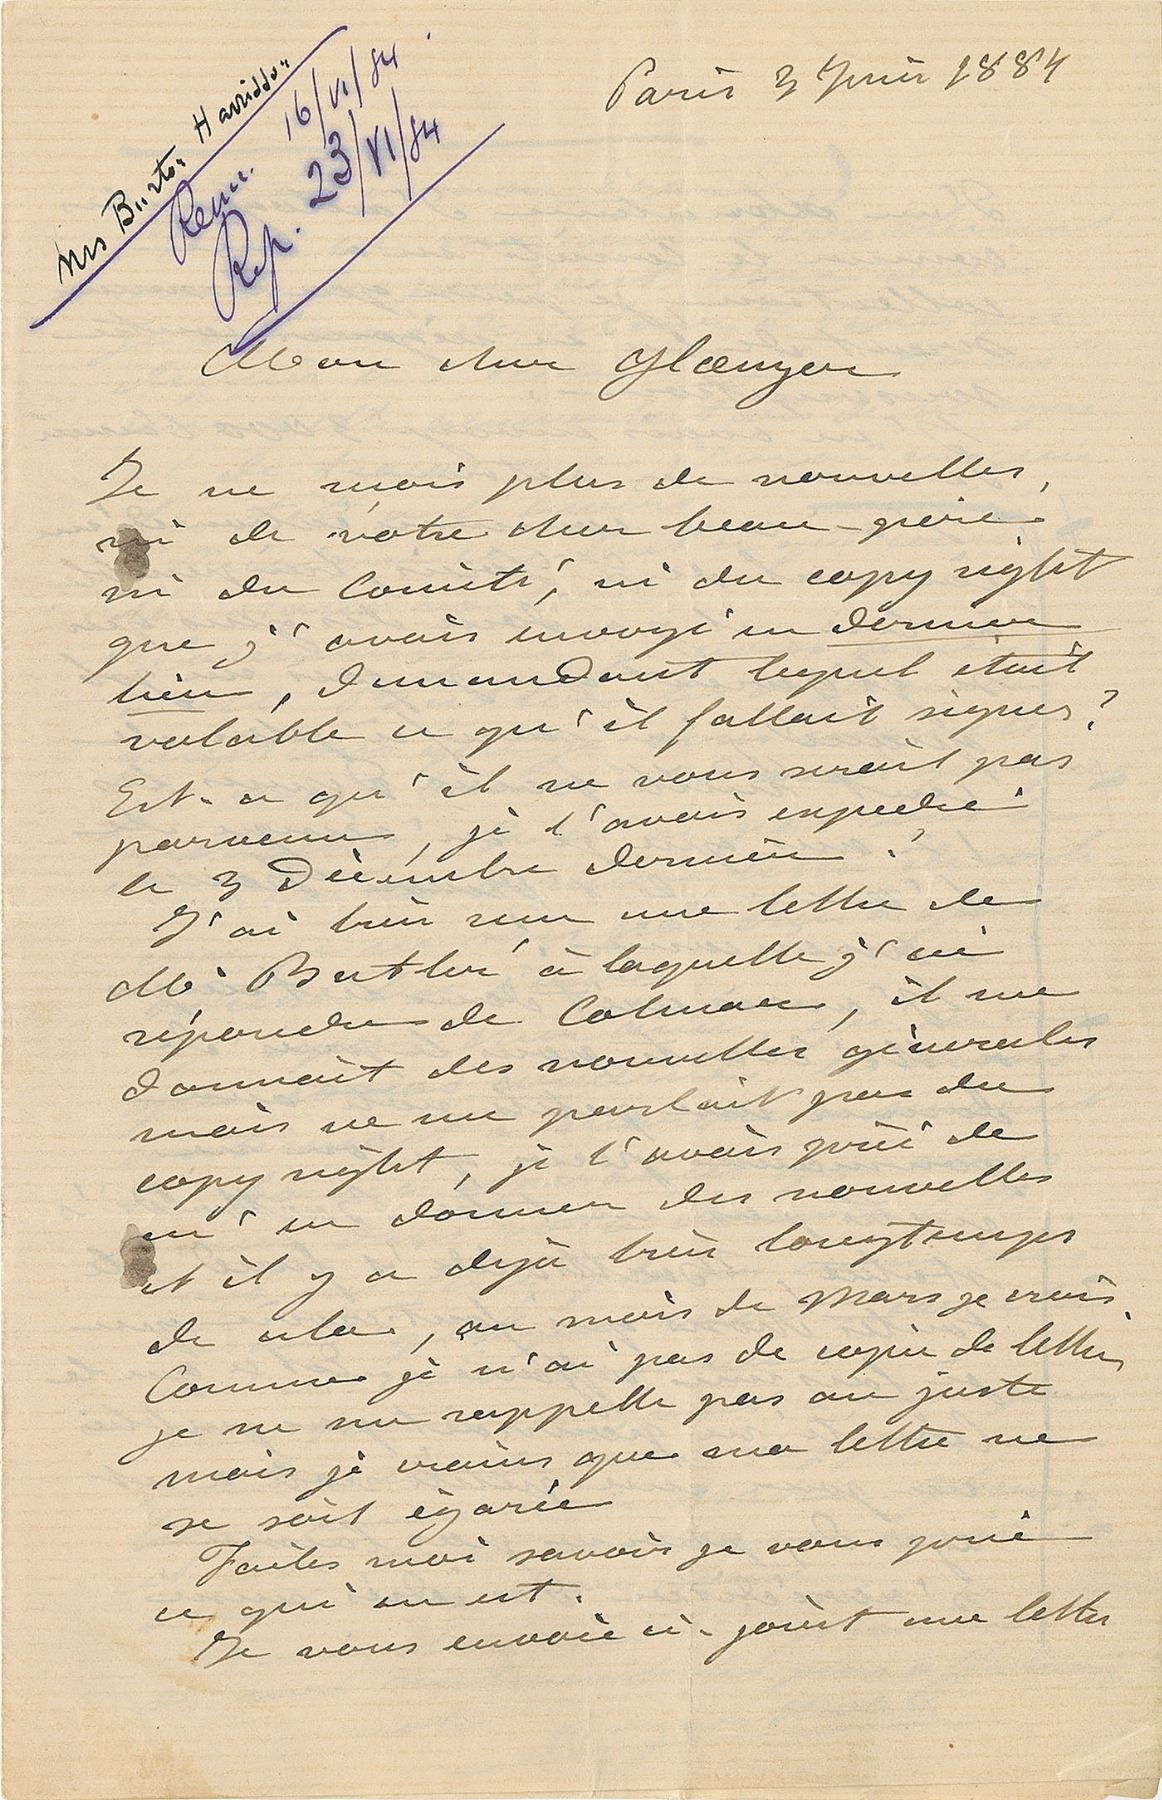 Paris 3 Juin 1884
Mrs Burton Harrison
Reçu. 16/VI/84
Rep. 23/VI/84
Mon cher Glaenzer
Je ne reçois plus de nouvelles,
ni de votre cher beau-père
ni du Comité, ni du copy right
que j'avais envoyé en dernier
lieu, demandant lequel était
valable ce qu'il fallait signer?
Est-ce qu'il ne vous serait pas
parvenu, je l'avais expedié
le 3 Décembre dernier?
J'ai bien reçu une lettre de
Mr Butler à laquelle j'ai
répondu de Colmar, il me
donnait des nouvelles génerales
mais ne me parlait pas du
copy right, je l'avais prié de
m'en donner des nouvelles
et il y a dejà bien longtemps
de cela, au mois de Mars je crois.
Comme je n'ai pas de copie de lettres
je ne me rappelle pas au juste
mais je crains que ma lettre ne
se soit égarée
Faites moi savoir je vous prie
ce qui en est.
Je vous envoie ci-joint une lettre